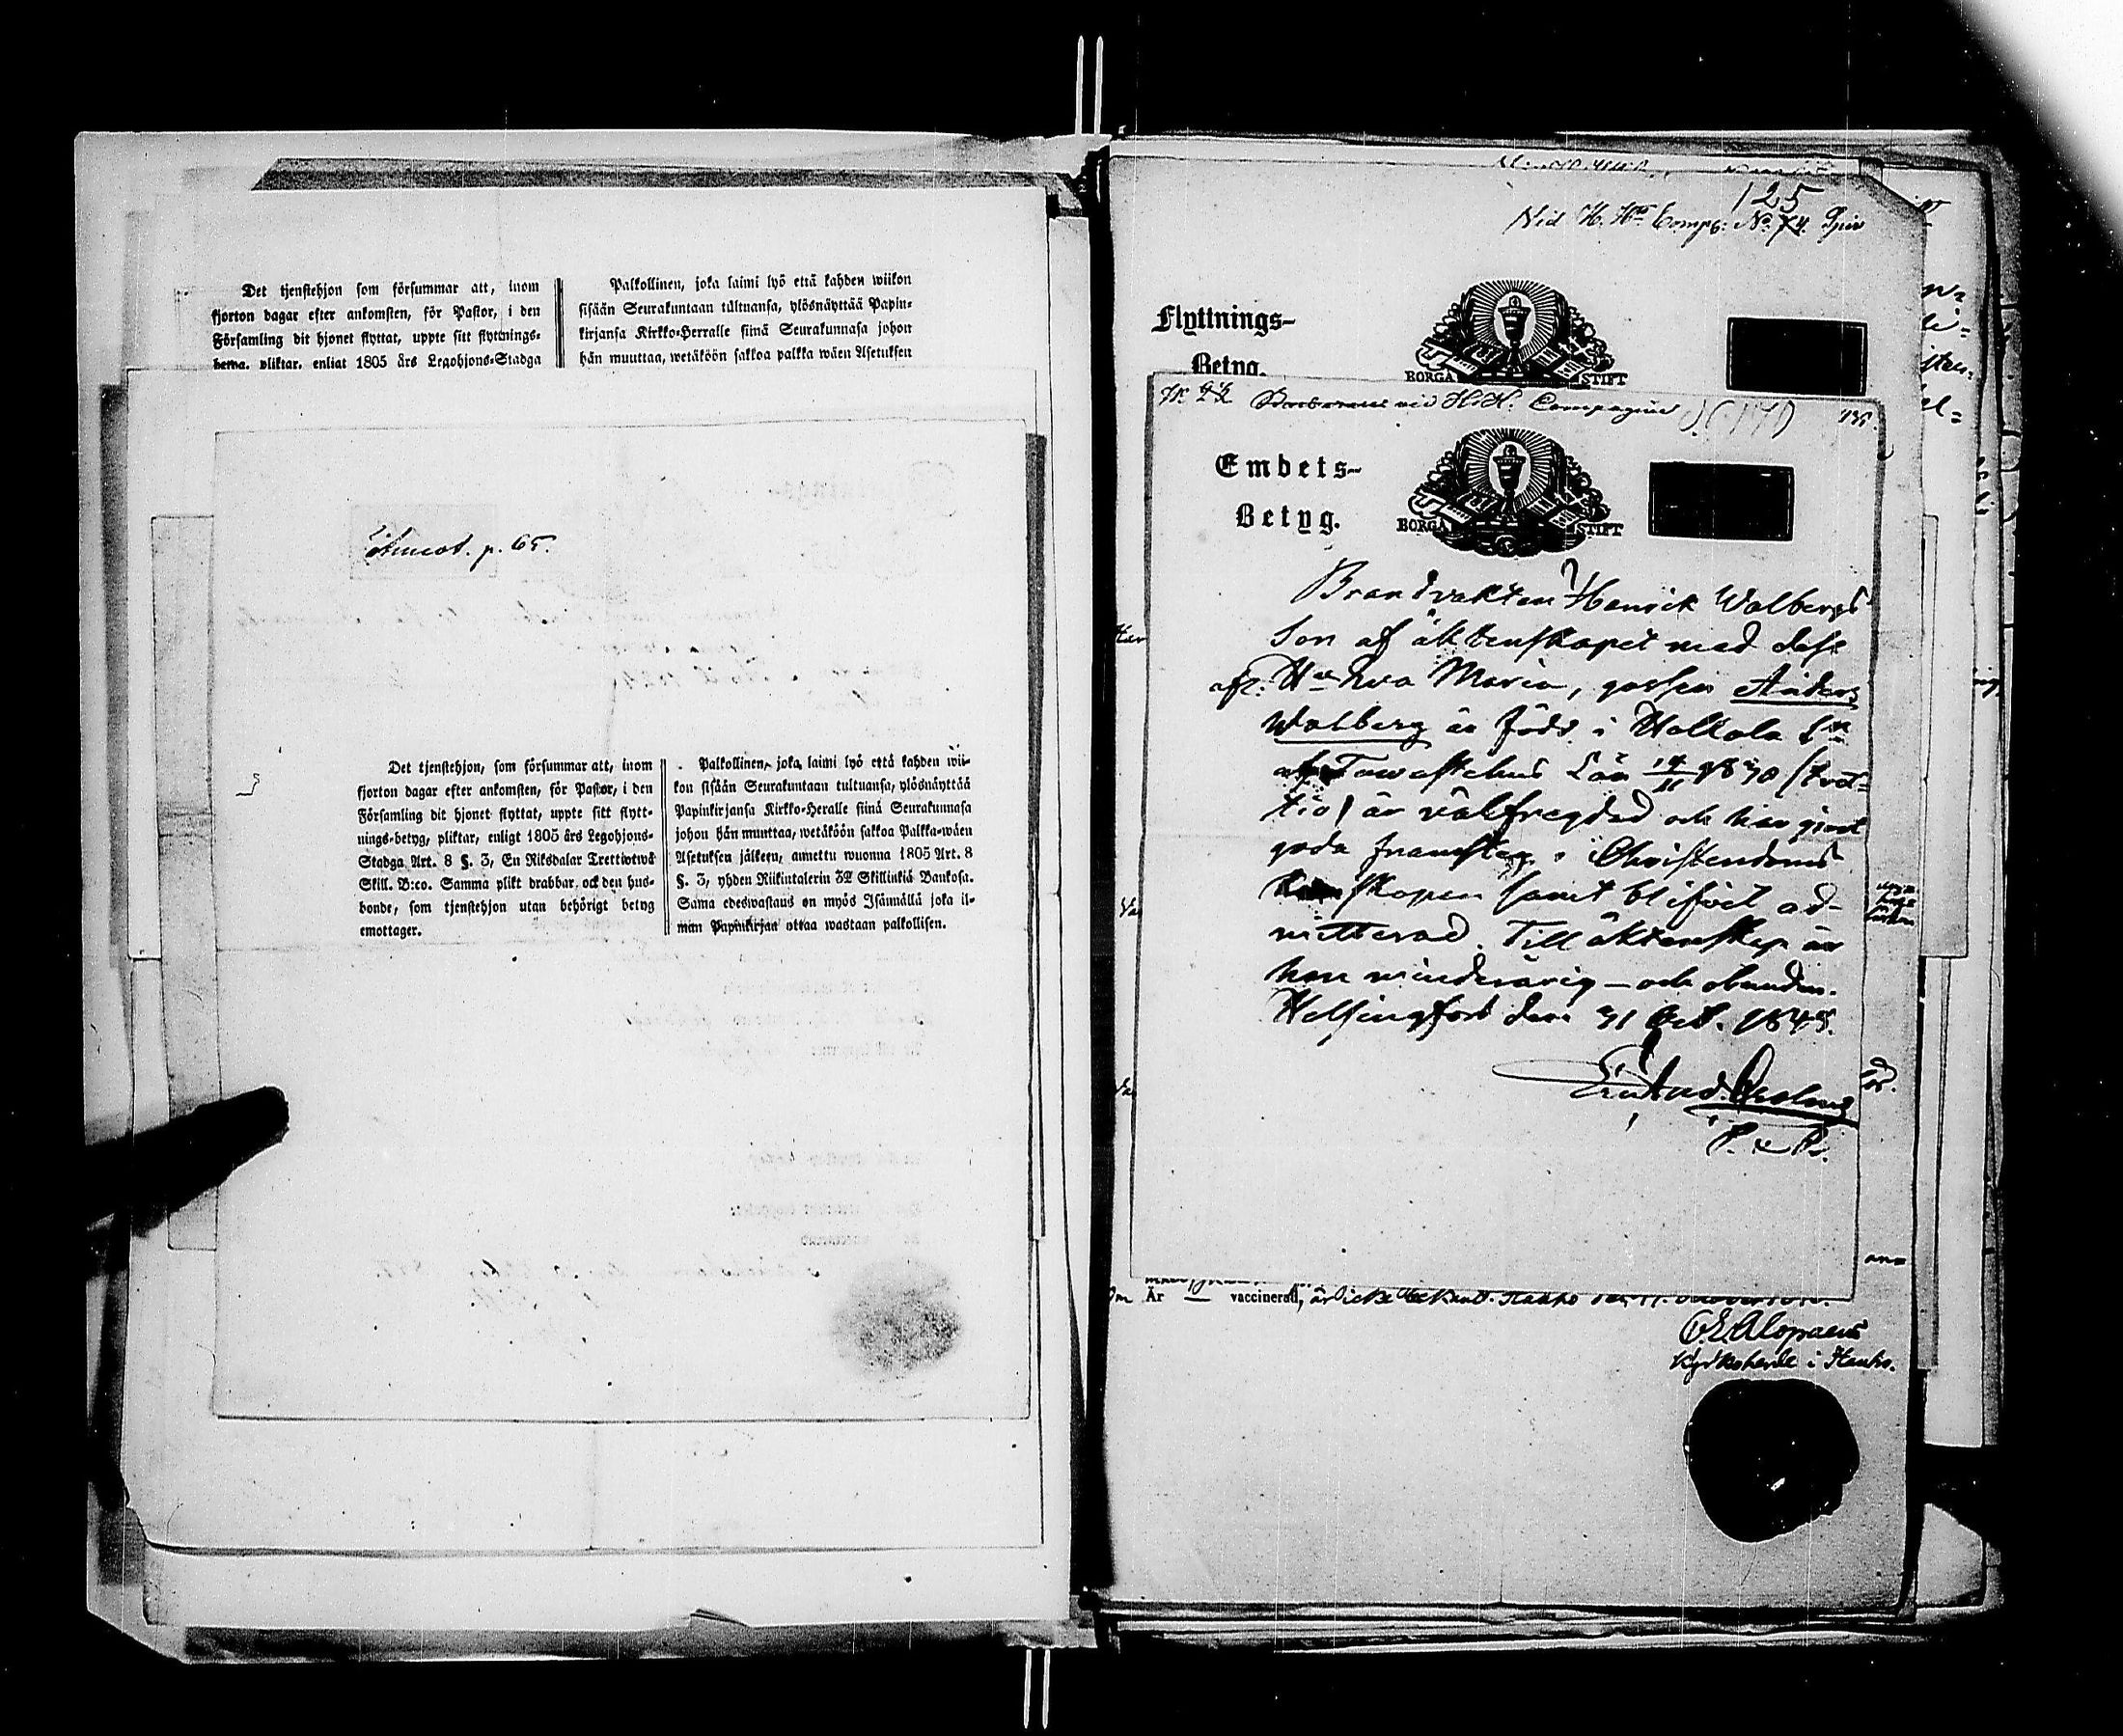 Det tjenstehjon som försummar att, inom
fjorton dagar efter ankomsten, för Pastor, i den
Församling dit hjonet flyttat, uppte sitt flyttnings-
betyg, pliktar, enligt 1805 års Legohjons-Stadga
Palkollinen, joka laimi lyö että kahden wiikon
sisään Seurakuntaan tultuansa, ylösnäyttää Papin-
kirjansa Kirkko-Herralle siinä Seurakunnasa johon
hän muuttaa, wetäköön sakkoa palkka wäen Asetuksen
p. 65.
Det tjenstehjon, som försummar att, inom
fjorton dagar efter ankomsten, för Pastor, i den
Församling dit hjonet flyttat, uppte sitt flytt-
nings-betyg, pliktar, enligt 1805 års Legohjons-
Stadga Art. 8 §. 3, En Riksdalar Trettiotwå
Skill. B:co. Samma plikt drabbar ock den hus-
bonde, som tjenstehjon utan behörigt betyg
emottager.
Palkollinen, joka laimi lyö että kahden wii-
kon sisään Seurakuntaan tultuansa, ylösnäyttää
Papinkirjansa Kirkko-Heralle siinä Seurakunnasa
johon hän muuttaa, wetäköön sakkoa Palkka-wäen
Asetuksen jälkeen, annettu wuonna 1805 Art. 8
§. 3, yhden Riikintalerin 32 Skillinkiä Bankosa.
Sama edeswastaus on myös Isännällä joka il-
man Papinkirjan ottaa wastaan palkollisen.
125
Vid H. Comp: No 74
Flyttnings-
Betyg.
BORGÅ STIFT
vid H. H. Compagnie
Embets-
Betyg.
BORGÅ STIFT
Brandvakten Henrick Walbergs
Son af äktenskapet med dess
Hu Eva Maria, gossen Anders
Walberg är född i Hollola Sn
af Tawastehus Län 1830 (tret-
tio) är välfregdad och har gjort
goda framsteg i Christendoms
kunskapen samt blifvit ad-
mitterad. Till äktenskap är
han minderårig – och obunden.
Helsingfors den 31 Oct. 1845.
Är vaccinerad, är icke bekant. Hauho
Alopaeus
Kyrkoherde i Hauho.